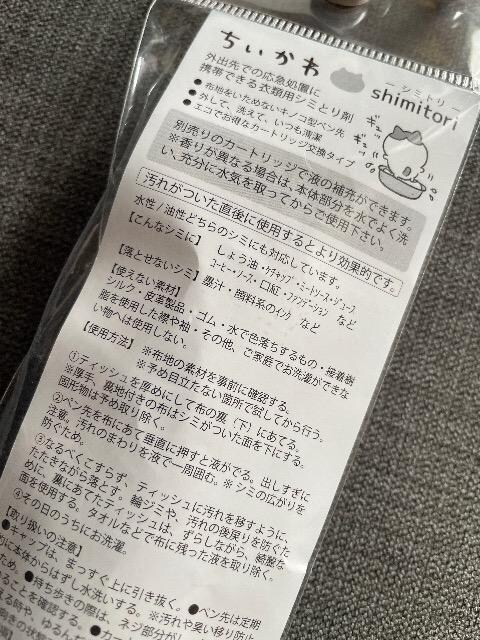 ちいかわ
シミトリー
shimitori
ギュッ
ギュッ
外出先での応急処置に
携帯できる衣類用シミとり剤
●布地をいためないキノコ型ペン先
●外して、洗えて、いつも清潔
●エコでお得なカートリッジ交換タイプ
別売りのカートリッジで液の補充ができます。
※香りが異なる場合は、本体部分を水でよく洗
い、充分に水気を取ってからご使用下さい。
汚れがついた直後に使用するとより効果的です。
水性/油性どちらのシミにも対応しています。
【こんなシミに】 しょう油・ケチャップ・ミートソース・ジュース
コーヒー・ソース・口紅・ファンデーション など
【落とせないシミ】墨汁・顔料系のインク など
【使えない素材】
シルク・皮革製品・ゴム・水で色落ちするもの・接着樹
脂を使用した襟や袖・その他、ご家庭でお洗濯ができな
い物へは使用しない。
【使用方法】 ※布地の素材を事前に確認する。
※予め目立たない箇所で試してから行う。
①ティッシュを厚めにして布の裏(下)にあてる。
※厚手、裏地付きの布はシミがついた面を下にする。
固形物は予め取り除く。
②ペン先を布にあて垂直に押すと液がでる。出しすぎに
注意。汚れのまわりを液で一周囲む。※シミの広がりを
防ぐため。
③なるべくこすらず、ティッシュに汚れを移すように、
たたきながら落とす。輪ジミや、汚れの後戻りを防ぐた
めに、裏にあてたティッシュは、ずらしながら、綺麗な
面を使用する。タオルなどで布に残った液を取り除く。
④その日のうちにお洗濯。
【取り扱いの注意】
●キャップは、まっすぐ上に引き抜く。●ペン先は定期
的に本体からはずし水洗いする。※汚れや臭い移り防止
のため。●持ち歩きの際は、ネジ部分が
ることを確認する。●カー
える時や、ゆるんだ
向きの状態